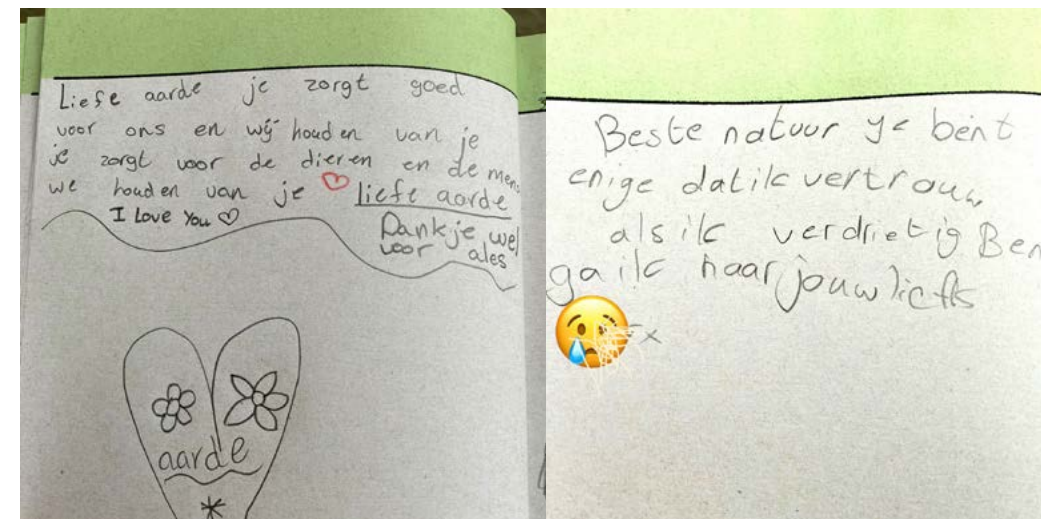 Liefe aarde je zorgt goed
voor ons en wij houden van je
je zorgt voor de dieren en de mens
we houden van je liefe aarde
I Love You
Dankje wel
voor ales
aarde
Beste natuur je bent
enige dat ik vertrouw
als ik verdrietig Ben
ga ik naar jouw liefs